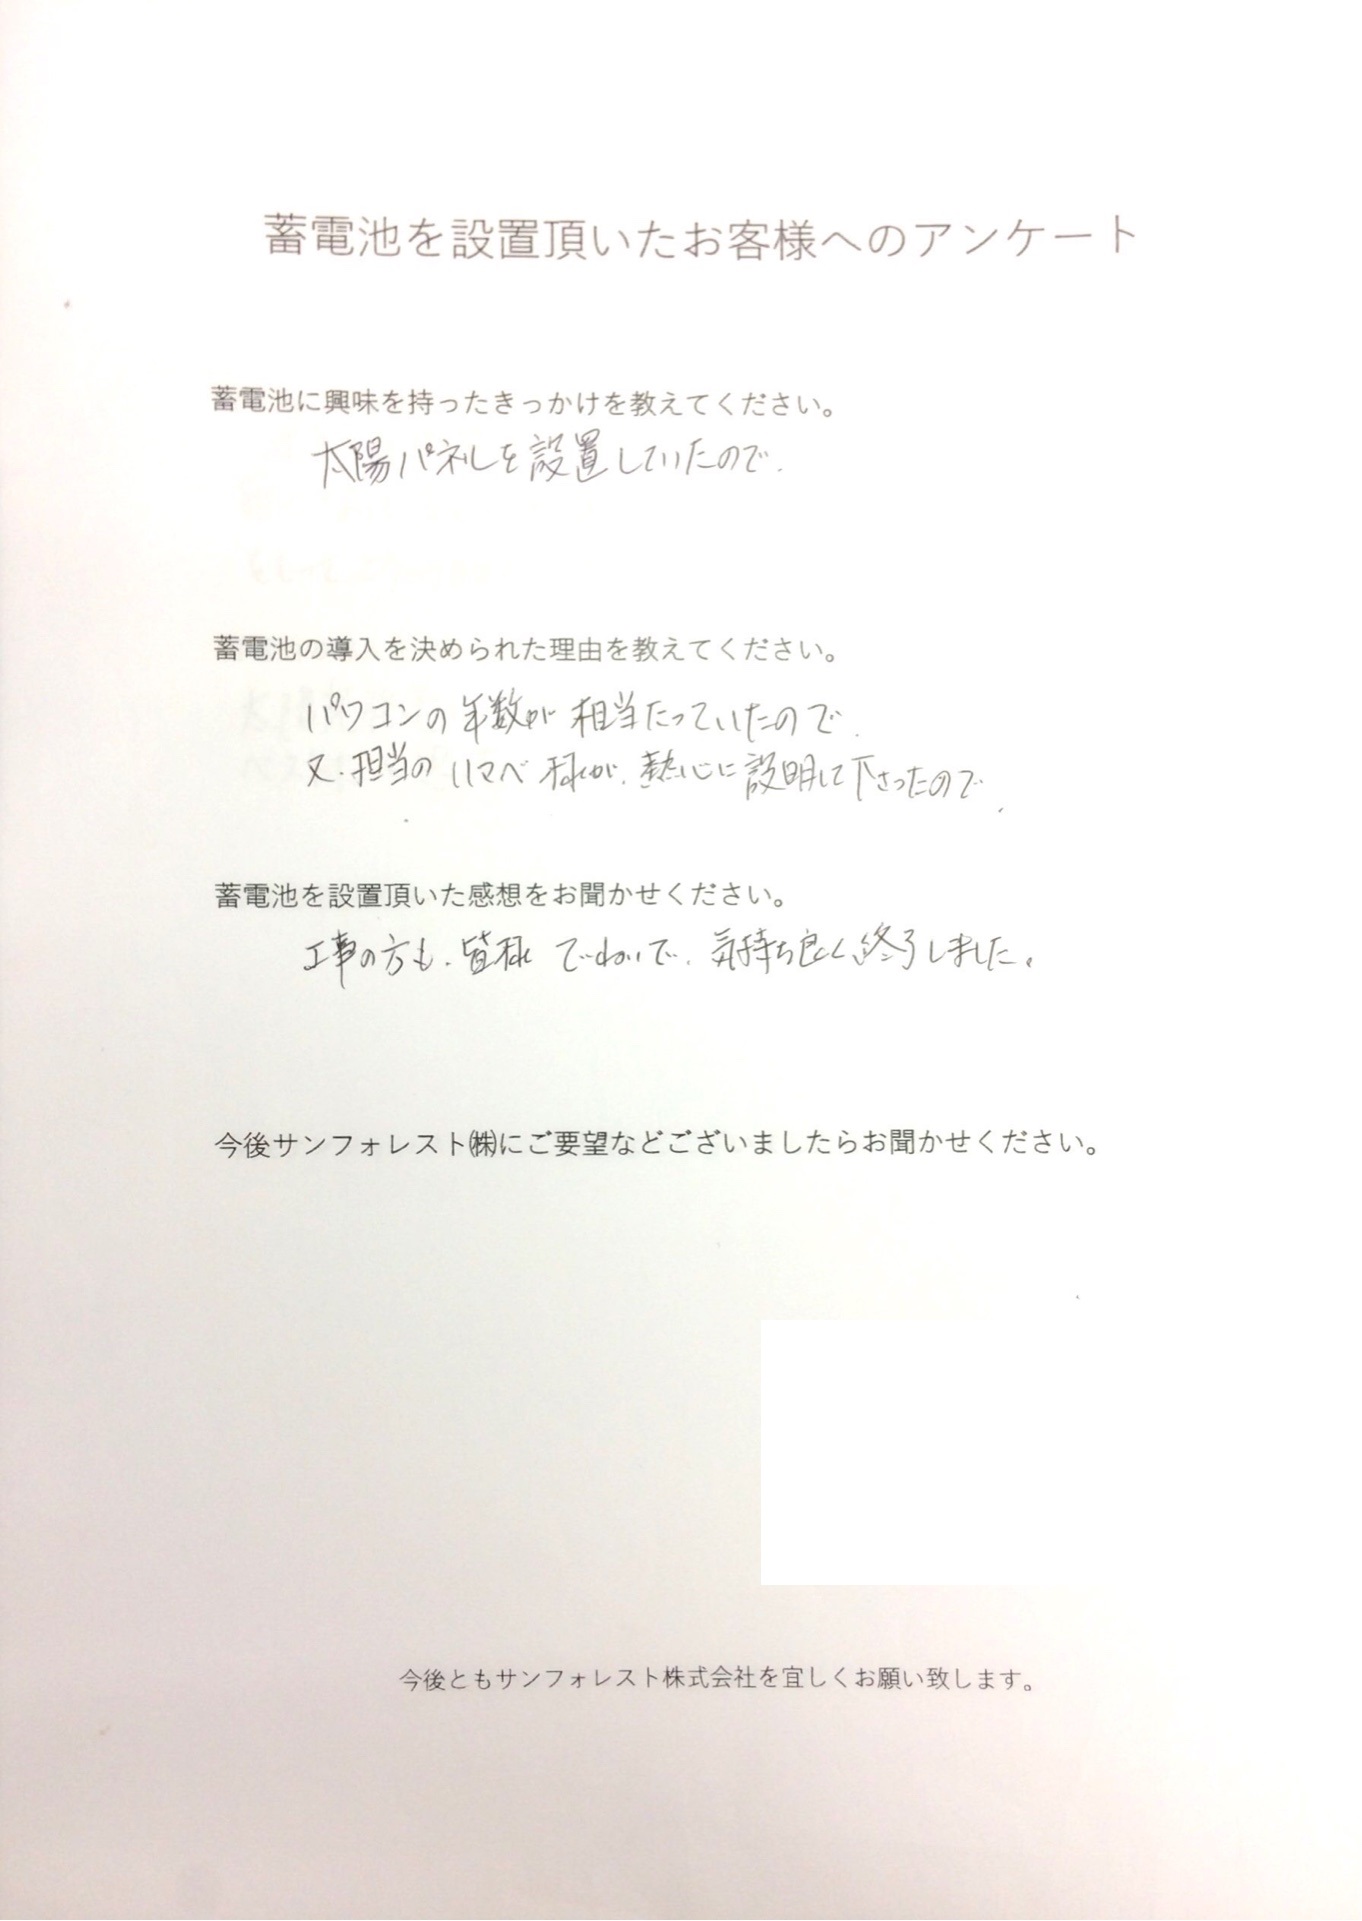 蓄電池を設置頂いたお客様へのアンケート
蓄電池に興味を持ったきっかけを教えてください。
太陽パネルを設置していたので.
蓄電池の導入を決められた理由を教えてください。
パワコンの年数が相当たっていたので.
又.担当の 様が.熱心に説明して下さったので.
蓄電池を設置頂いた感想をお聞かせください。
工事の方も.皆様 で.気持ち良く終了しました。
今後サンフォレスト㈱にご要望などございましたらお聞かせください。
今後ともサンフォレスト株式会社を宜しくお願い致します。